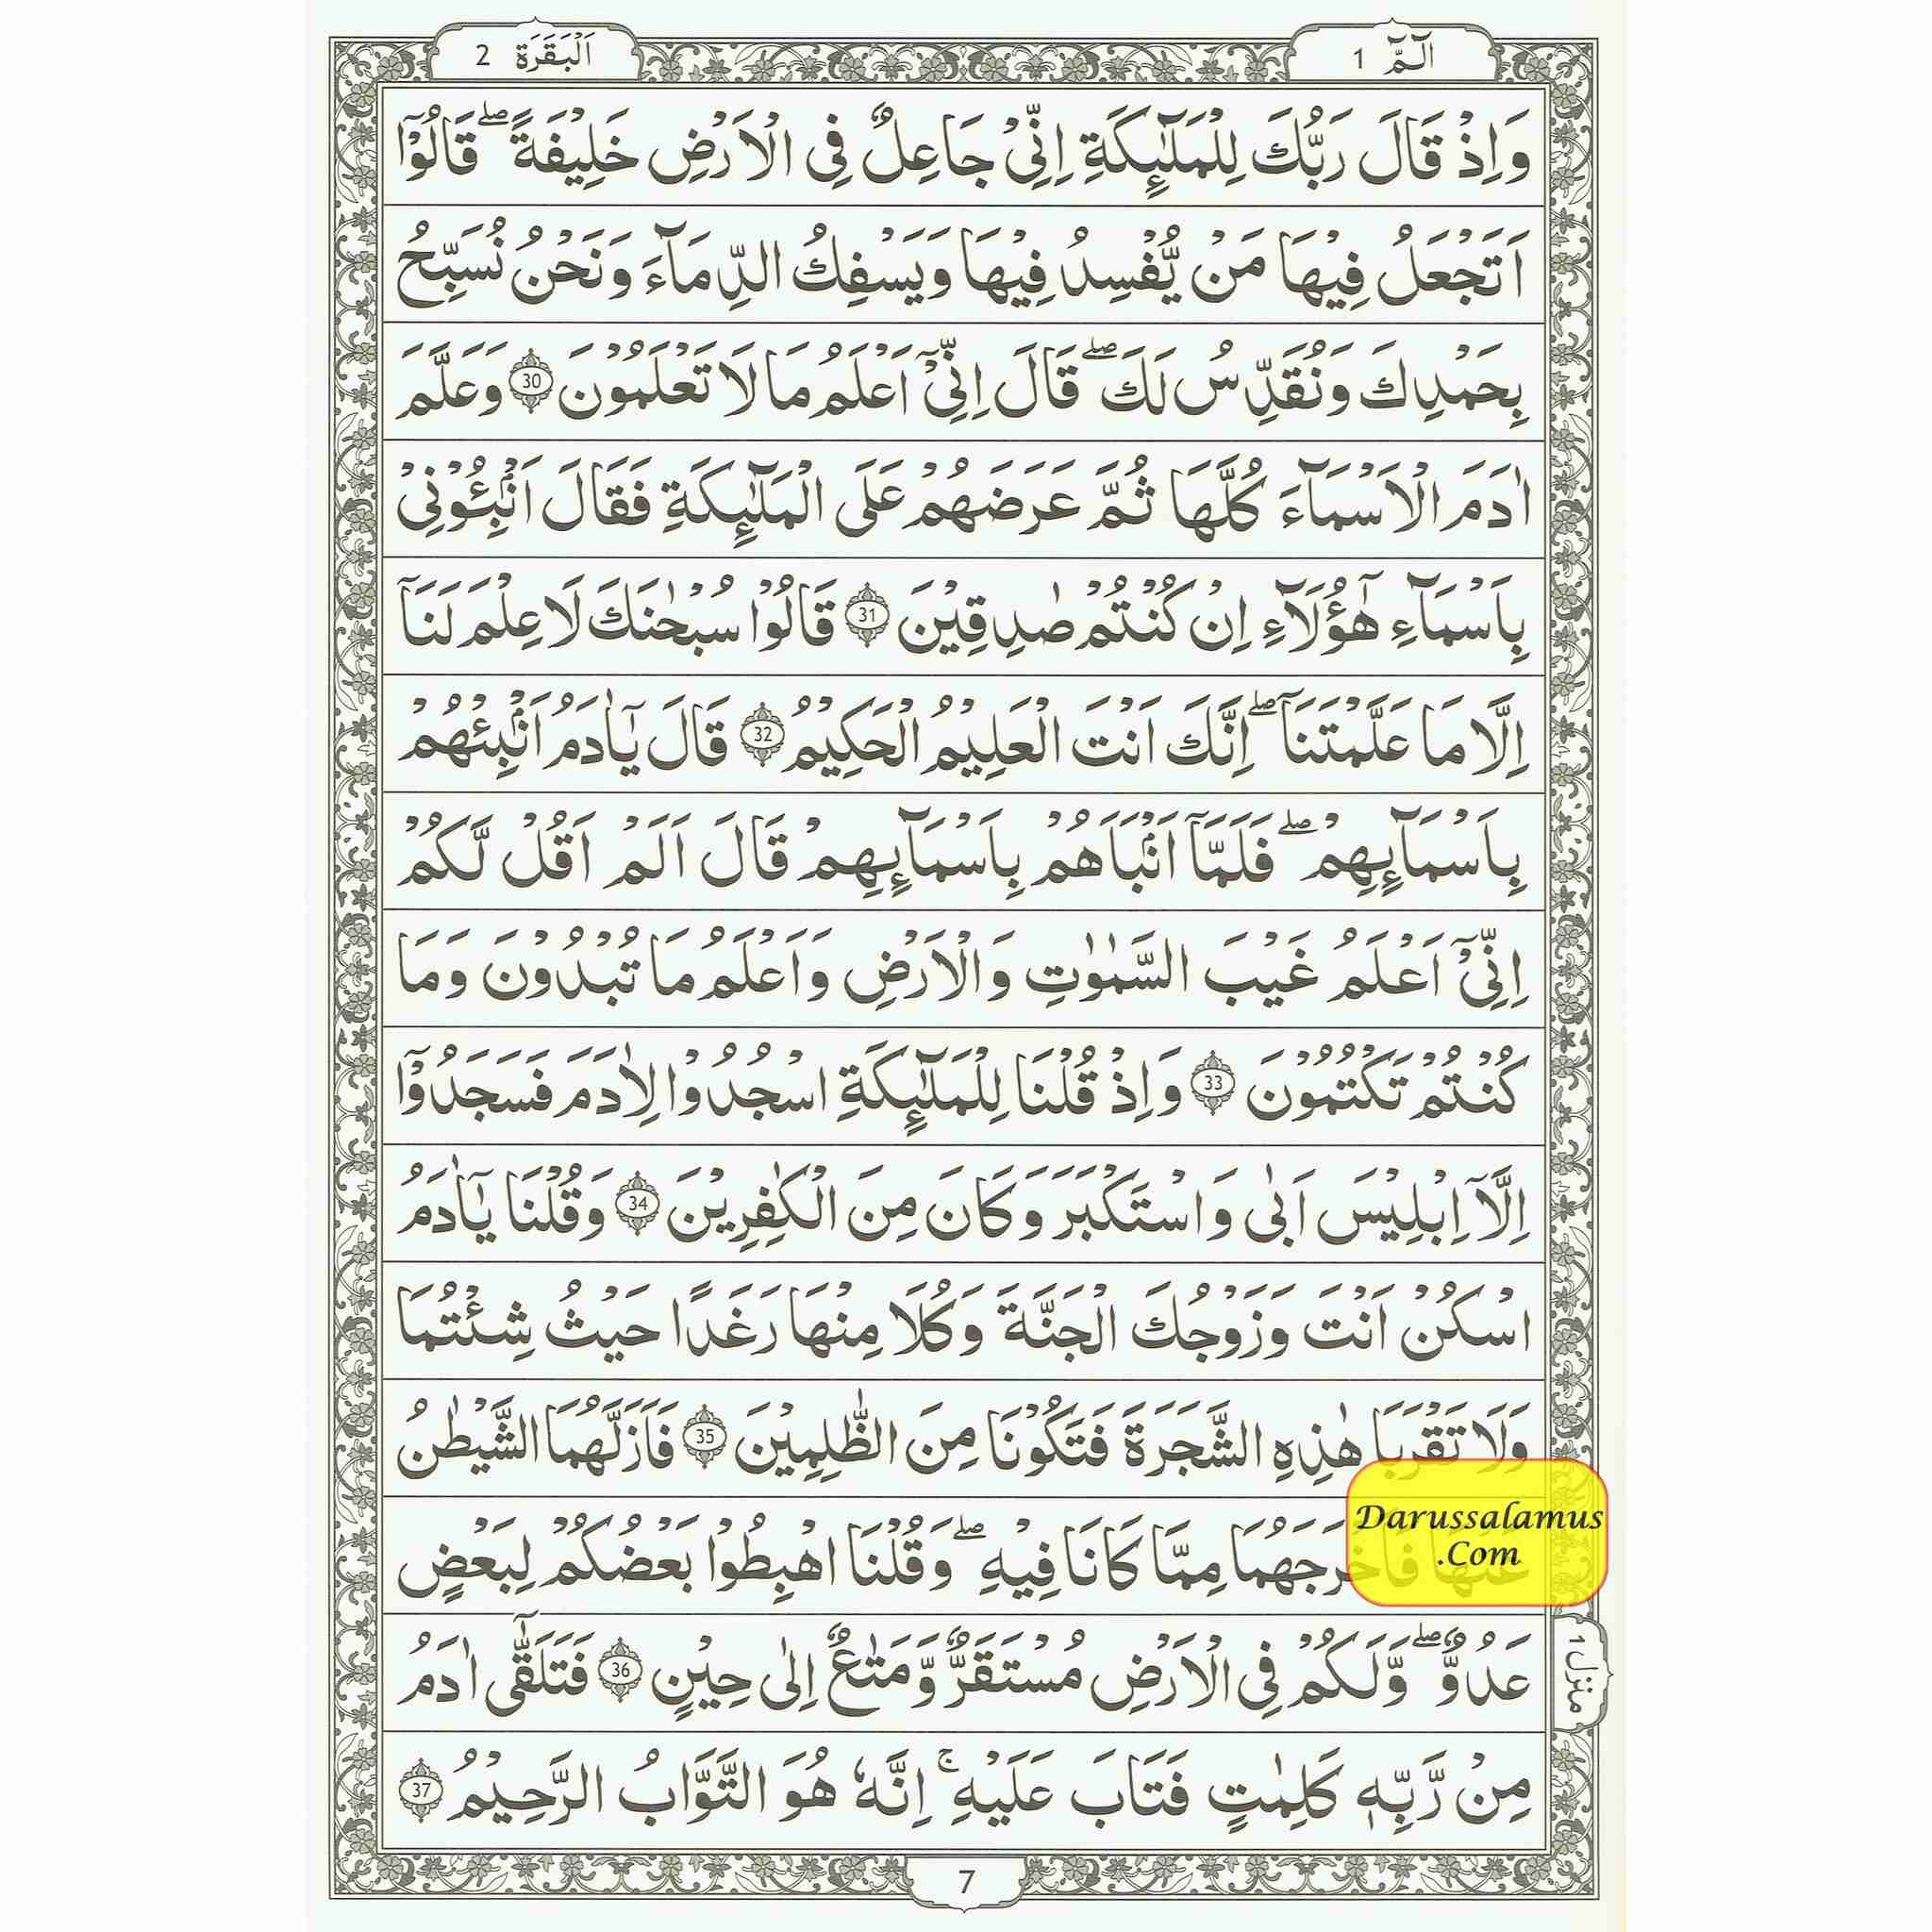 الٓمّٓ 1
اَلْبَقَرَة 2
وَاِذْ قَالَ رَبُّكَ لِلْمَلٰٓئِكَةِ اِنِّىْ جَاعِلٌ فِى الْاَرْضِ خَلِيْفَةً ۖ قَالُوْٓا
اَتَجْعَلُ فِيْهَا مَنْ يُّفْسِدُ فِيْهَا وَيَسْفِكُ الدِّمَآءَ وَنَحْنُ نُسَبِّحُ
بِحَمْدِكَ وَنُقَدِّسُ لَكَ ۖ قَالَ اِنِّىْٓ اَعْلَمُ مَا لَا تَعْلَمُوْنَ 30 وَعَلَّمَ
اٰدَمَ الْاَسْمَآءَ كُلَّهَا ثُمَّ عَرَضَهُمْ عَلَى الْمَلٰٓئِكَةِ فَقَالَ اَنْۢبِئُوْنِىْ
بِاَسْمَآءِ هٰٓؤُلَآءِ اِنْ كُنْتُمْ صٰدِقِيْنَ 31 قَالُوْا سُبْحٰنَكَ لَا عِلْمَ لَنَآ
اِلَّا مَا عَلَّمْتَنَا ۖ اِنَّكَ اَنْتَ الْعَلِيْمُ الْحَكِيْمُ 32 قَالَ يٰٓاٰدَمُ اَنْۢبِئْهُمْ
بِاَسْمَآئِهِمْ ۖ فَلَمَّآ اَنْۢبَاَهُمْ بِاَسْمَآئِهِمْ قَالَ اَلَمْ اَقُلْ لَّكُمْ
اِنِّىْٓ اَعْلَمُ غَيْبَ السَّمٰوٰتِ وَالْاَرْضِ وَاَعْلَمُ مَا تُبْدُوْنَ وَمَا
كُنْتُمْ تَكْتُمُوْنَ 33 وَاِذْ قُلْنَا لِلْمَلٰٓئِكَةِ اسْجُدُوْا لِاٰدَمَ فَسَجَدُوْٓا
اِلَّآ اِبْلِيْسَ اَبٰى وَاسْتَكْبَرَ وَكَانَ مِنَ الْكٰفِرِيْنَ 34 وَقُلْنَا يٰٓاٰدَمُ
اسْكُنْ اَنْتَ وَزَوْجُكَ الْجَنَّةَ وَكُلَا مِنْهَا رَغَدًا حَيْثُ شِئْتُمَا
وَلَا تَقْرَبَا هٰذِهِ الشَّجَرَةَ فَتَكُوْنَا مِنَ الظّٰلِمِيْنَ 35 فَاَزَلَّهُمَا الشَّيْطٰنُ
عَنْهَا فَاَخْرَجَهُمَا مِمَّا كَانَا فِيْهِ ۖ وَقُلْنَا اهْبِطُوْا بَعْضُكُمْ لِبَعْضٍ
Darussalamus
.Com
عَدُوٌّ ۖ وَّلَكُمْ فِى الْاَرْضِ مُسْتَقَرٌّ وَّمَتٰعٌ اِلٰى حِيْنٍ 36 فَتَلَقّٰٓى اٰدَمُ
منزل 1
مِنْ رَّبِّهٖ كَلِمٰتٍ فَتَابَ عَلَيْهِ ۚ اِنَّهٗ هُوَ التَّوَّابُ الرَّحِيْمُ 37
7